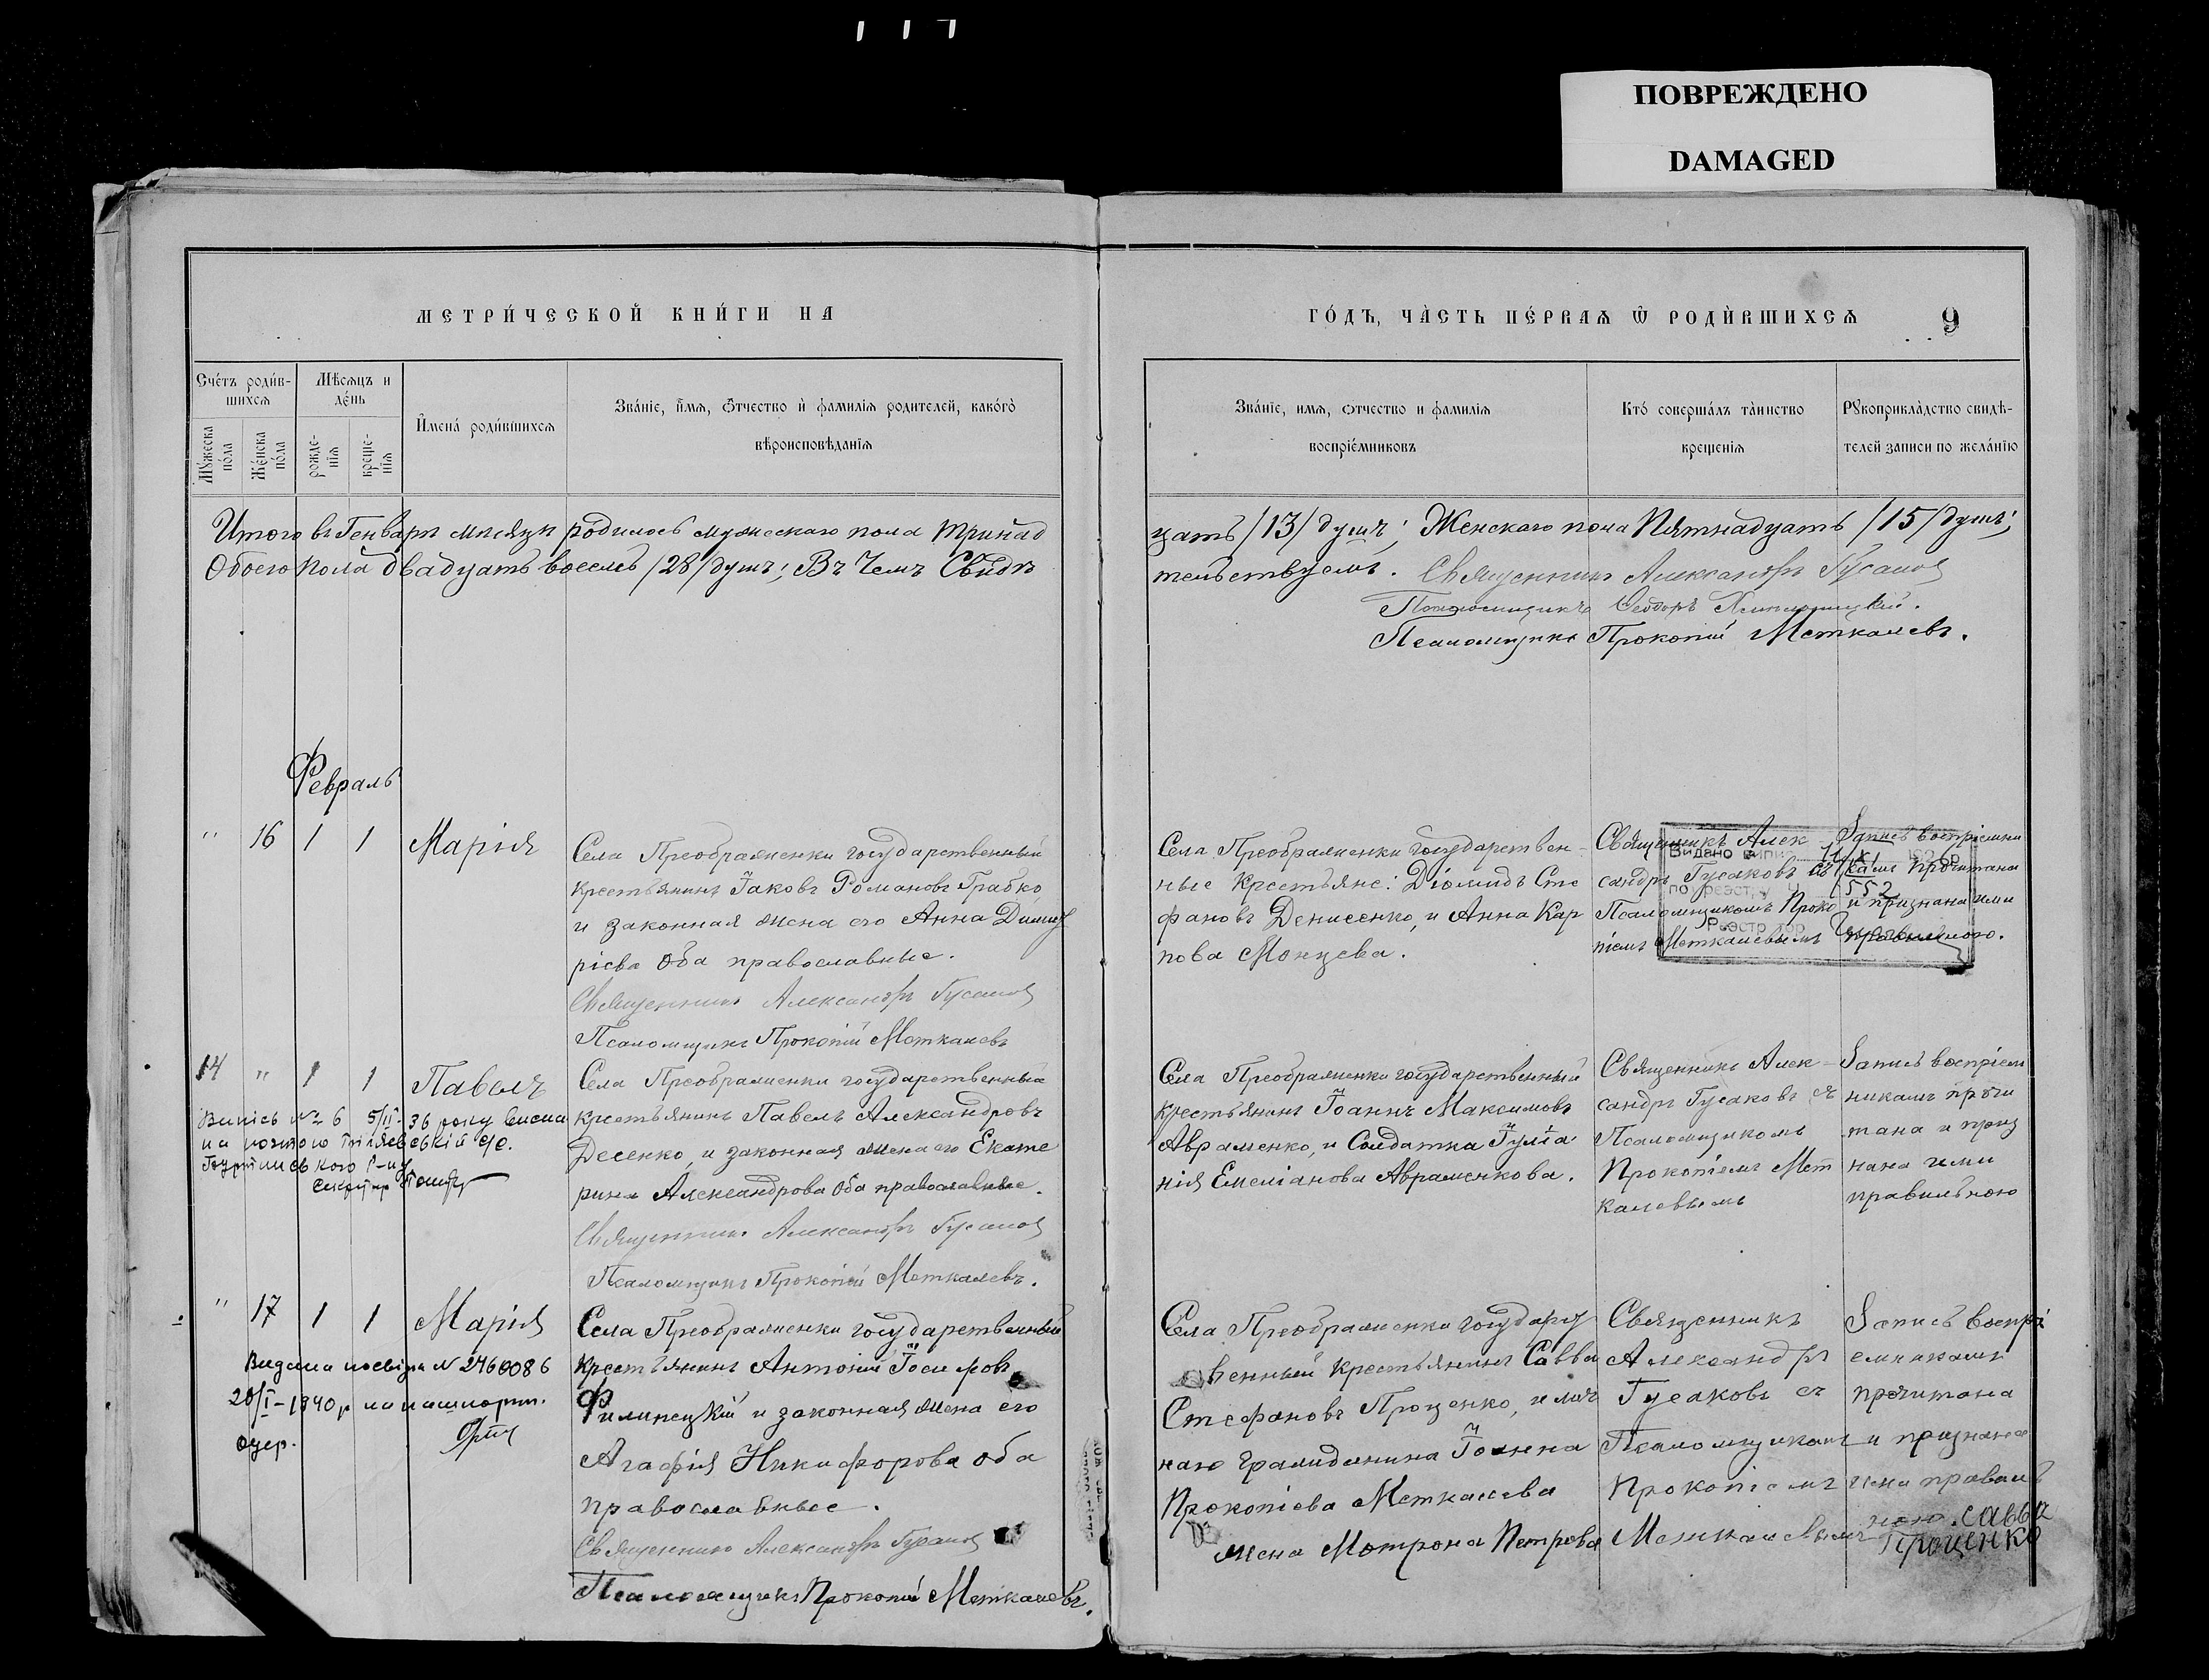 ПОВРЕЖДЕНО
DAMAGED
МЕТРИ́ЧЕСКОЙ КНИ́ГИ НА
ГО́ДЪ, ЧА̀СТЬ ПЕ́РВАѦ Ѡ РОДЍВШИХСѦ
9
Сче́тъ роди́в-
шихсѧ
Мѣсѧцъ и
де́нь
И҆мена̀ роди́вшихсѧ
Зва́нїе, и҆́мѧ, ѻ҆́тчество и҆ фамилїѧ родителей, како́гѡ
вѣроисповѣданїѧ
Мꙋ́жеска
по́ла
Же́нска
по́ла
рожде-
нїѧ
креще-
нїѧ
Зва́нїе, имѧ, ѻтчество и фамилїѧ
воспрїе́мниковъ
Кто̀ соверша́лъ та̀инство
крещенїѧ
Рꙋкоприкла̀дство свидѣ-
телей записи по жела́нїю
Итого въ Генварѣ мѣсяцѣ родилось мужескаго пола тринад
цать /13/ душъ; Женскаго пола Пятнадцать /15/ душъ;
Обоего пола двадцать восемь /28/ душъ; Въ Чемъ Свидѣ
тельствуемъ. Священникъ Александръ Гусаковъ
Ѳеодоръ
Псаломщикъ Прокопій Меткалевъ.
Февраль
" 16 1 1 Марія
Села Преображенки государственный
крестьянинъ Іаковъ Романовъ Грабко,
и законная жена его Анна Димит
ріева Оба православные.
Священникъ Александръ Гусаковъ
Псаломщикъ Прокопій Меткалевъ
Села Преображенки государствен-
ные крестьяне: Діомидъ Сте
фановъ Денисенко, и Анна Кар
пова Монцева.
Священникъ Алек
сандръ Гусаковъ съ
Псаломщикомъ Проко
піемъ Меткалевымъ
Запись воспріемни
камъ прочитана
и признана ими
правильною.
Видано
по реєстру
552
Реєстратор
14 " 1 1 Павелъ
Села Преображенки государственный
крестьянинъ Павелъ Александровъ
Десенко, и законная жена его Екате
рина Александрова Оба православные.
Священникъ Александръ Гусаковъ
Псаломщикъ Прокопій Меткалевъ.
Випісь № 6 5/II 36 року
Села Преображенки государственный
крестьянинъ Іоаннъ Максимовъ
Авраменко, и Солдатка Іуліа
нія Емеліанова Авраменкова.
Священникъ Алек-
сандръ Гусаковъ съ
Псаломщикомъ
Прокопіемъ Мет
калевымъ
Запись воспріем
никамъ прочи
тана и приз
нана ими
правильною
" 17 1 1 Марія
Села Преображенки государственный
крестьянинъ Антоній Іосифовъ
Филипецкій и законная жена его
Агафія Никифорова оба
православные.
Священникъ Александръ Гусаковъ
Псаломщикъ Прокопій Меткалевъ.
Видана № 2460086
20/I-1940р на пашпорт.
Села Преображенки государст
венный крестьянинъ Савва
Стефановъ Проценко, и лич
наго гражданина Іоанна
Прокопіева Меткалева
жена Мотрона Петрова
Священникъ
Александръ
Гусаковъ съ
Псаломщикомъ
Прокопіемъ
Меткалевымъ
Запись воспрі
емникамъ
прочитана
и признана
ими правиль
ною. Савва
Проценко